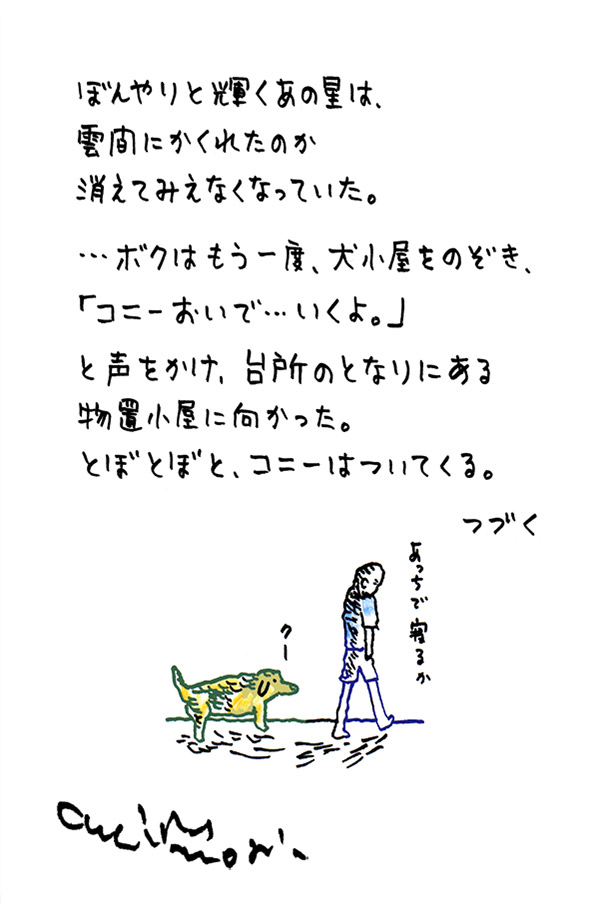 ぼんやりと輝くあの星は、
雲間にかくれたのか
消えてみえなくなっていた。
…ボクはもう一度、犬小屋をのぞき、
「コニーおいで…いくよ。」
と声をかけ、台所のとなりにある
物置小屋に向かった。
とぼとぼと、コニーはついてくる。
つづく
あっちで寝るか
クー